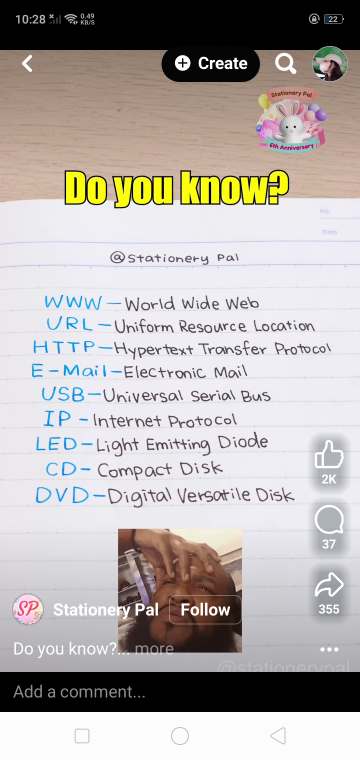 10:28
0.49 KB/S
22
Create
Stationery Pal
6th Anniversary
Do you know?
@Stationery Pal
WWW – World Wide Web
URL – Uniform Resource Location
HTTP – Hypertext Transfer Protocol
E-Mail – Electronic Mail
USB – Universal Serial Bus
IP – Internet Protocol
LED – Light Emitting Diode
CD – Compact Disk
DVD – Digital Versatile Disk
2K
37
355
SP
Stationery Pal
Follow
Do you know?... more
@stationerypal
Add a comment...